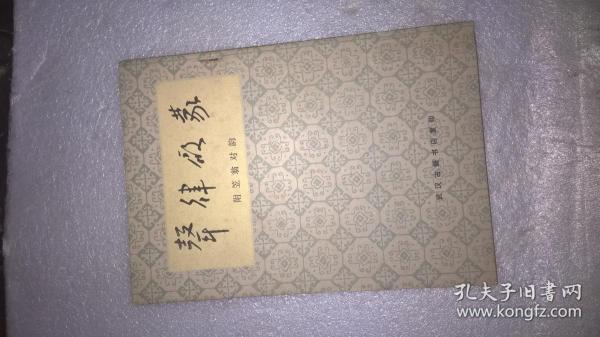 聲律启蒙
附笠翁对韵
武汉古籍书店复印
孔夫子旧書网
www.kongfz.com